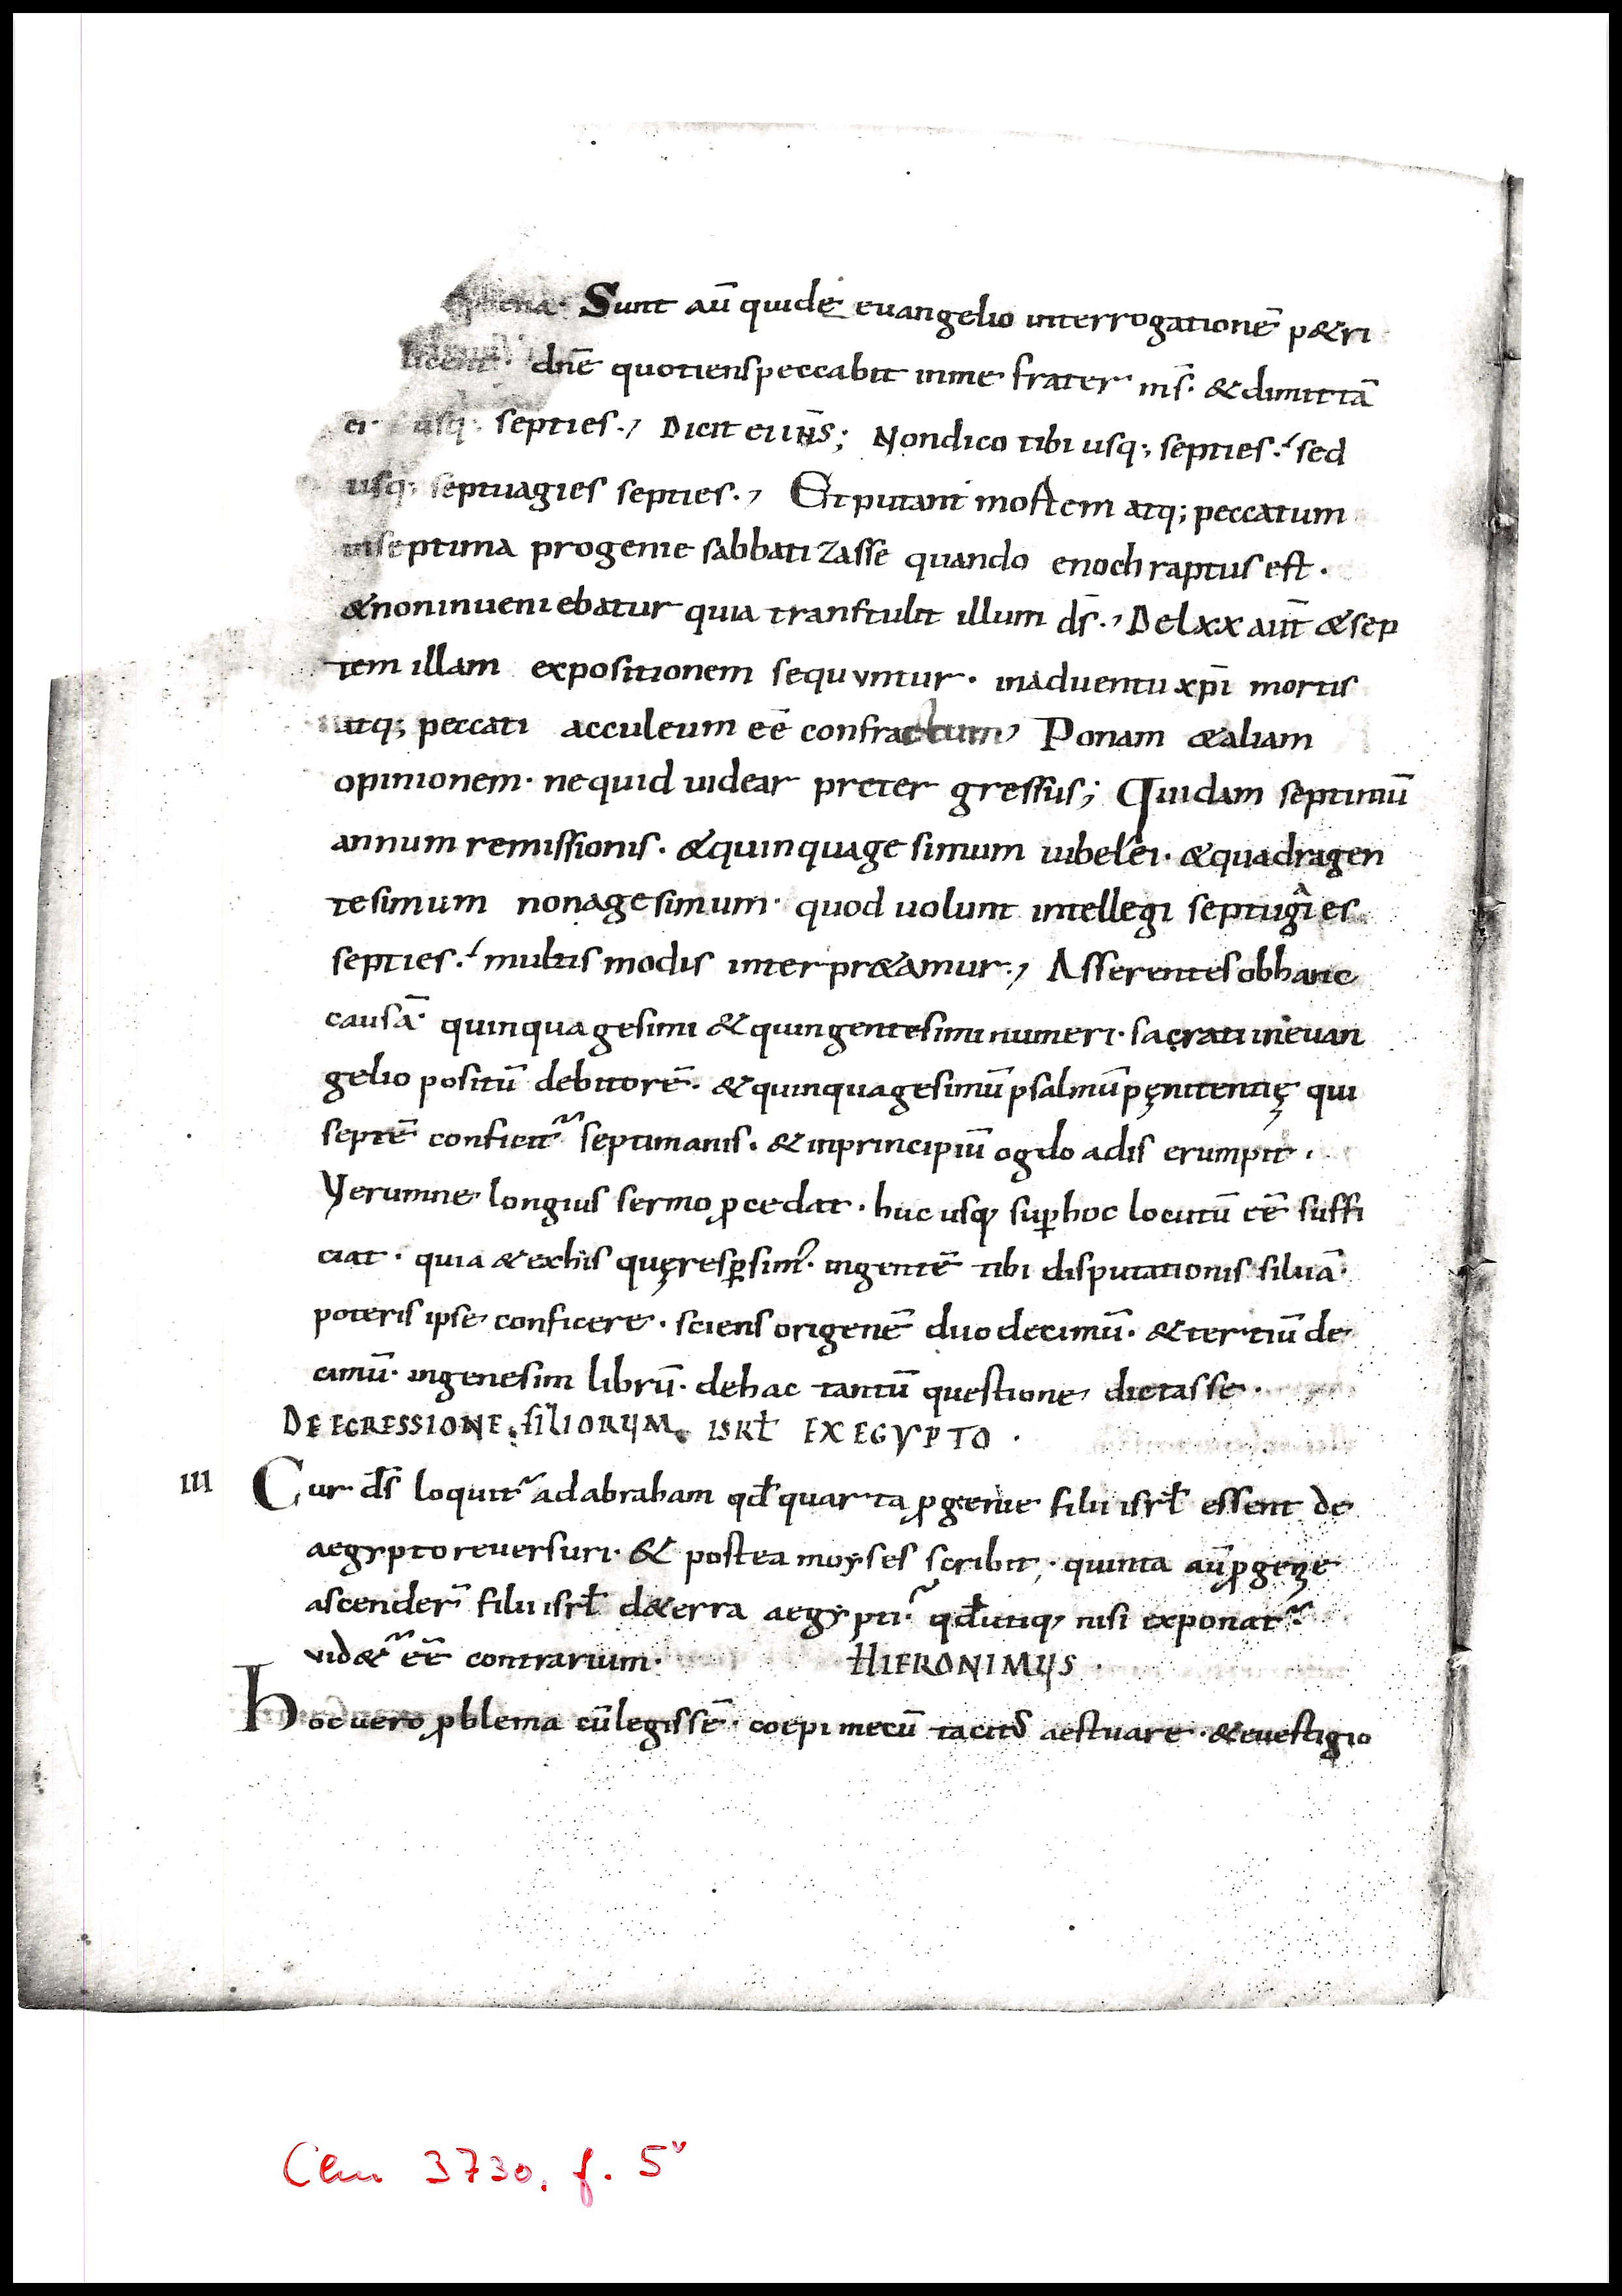 Sunt aū quide evangelio interrogationē p&ri
dnē quotienspeccabit inme frater ms̄. &dimittā
ei· usq; septies., Dicit ei ih̄s; Nondico tibi usq; septies. sed
usq; septuagies septies., Et putant mortem atq; peccatum
inseptima progenie sabbatizasse quando enoch raptus est.
&noninueniebatur quia transtulit illum ds̄., De lxx aut̄ &sep
tem illam expositionem sequuntur. inaduentu xp̄i mortis
atq; peccati acculeum eē confractum, Ponam &aliam
opinionem· nequid uidear preter gressus; Quidam septimū
annum remissionis. &quinquagesimum iubelei. &quadragen
tesimum nonagesimum· quod uolunt intellegi septugiaes
septies. multis modis interpr&amur., Asserentes obhanc
causā· quinquagesimi &quingentesimi numeri· sacrati ineuan
gelio positū debitorē. &quinquagesimū psalmū pęnitentię qui
septē conficit᷑ septimanis. &inprincipiū ogdoadis erumpit.
Verumne longius sermo ꝓcedat. huc usq; suꝑhoc locutū eē suffi
ciat. quia &exhis quęresꝑsim᷒. ingentē tibi disputationis siluā·
poteris ipse conficere. sciens origenē duodecimū. &tertiū de
cimū· ingenesim librū· dehac tantū questione dictasse.
DE EGRESSIONE FILIORUM ISRƚ EX EGYPTO .
III Cur ds̄ loquit᷑ adabraham qd̄ quarta ꝓgenie filii isrƚ essent de
aegypto reuersuri. & postea moyses scribit. quinta aū ꝓgenie
ascender̄ filii isrƚ d&erra aegypti. qd̄ utiq; nisi exponat᷑
uid&᷑ eē contrarium. HIERONIMUS .
Hoc uero ꝓblema cūlegissē· coepi mecū tacitus aestuare. &euestigio
Clm 3730, f. 5v